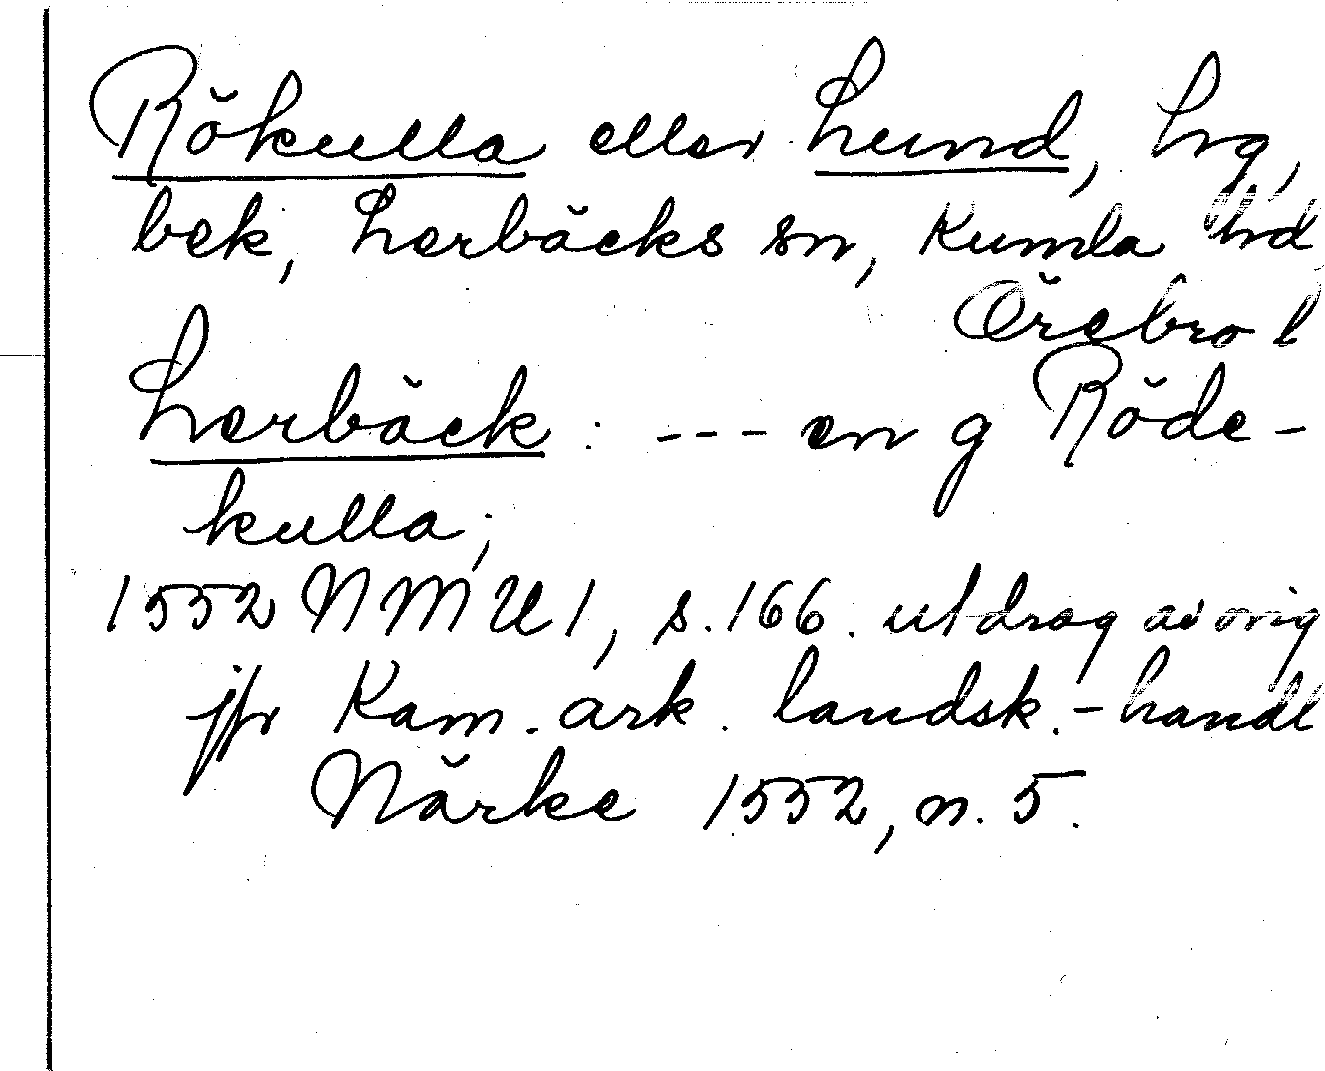 Rökulla eller Lund, hrg,
bek, Lerbäcks sn, Kumla hd
Örebro l
Lerbäck: --- en g Röde-
kulla;
1552 NMU 1, s. 166. utdrag av orig
jfr Kam. ark. landsk.-handl
Närke 1552, n. 5.